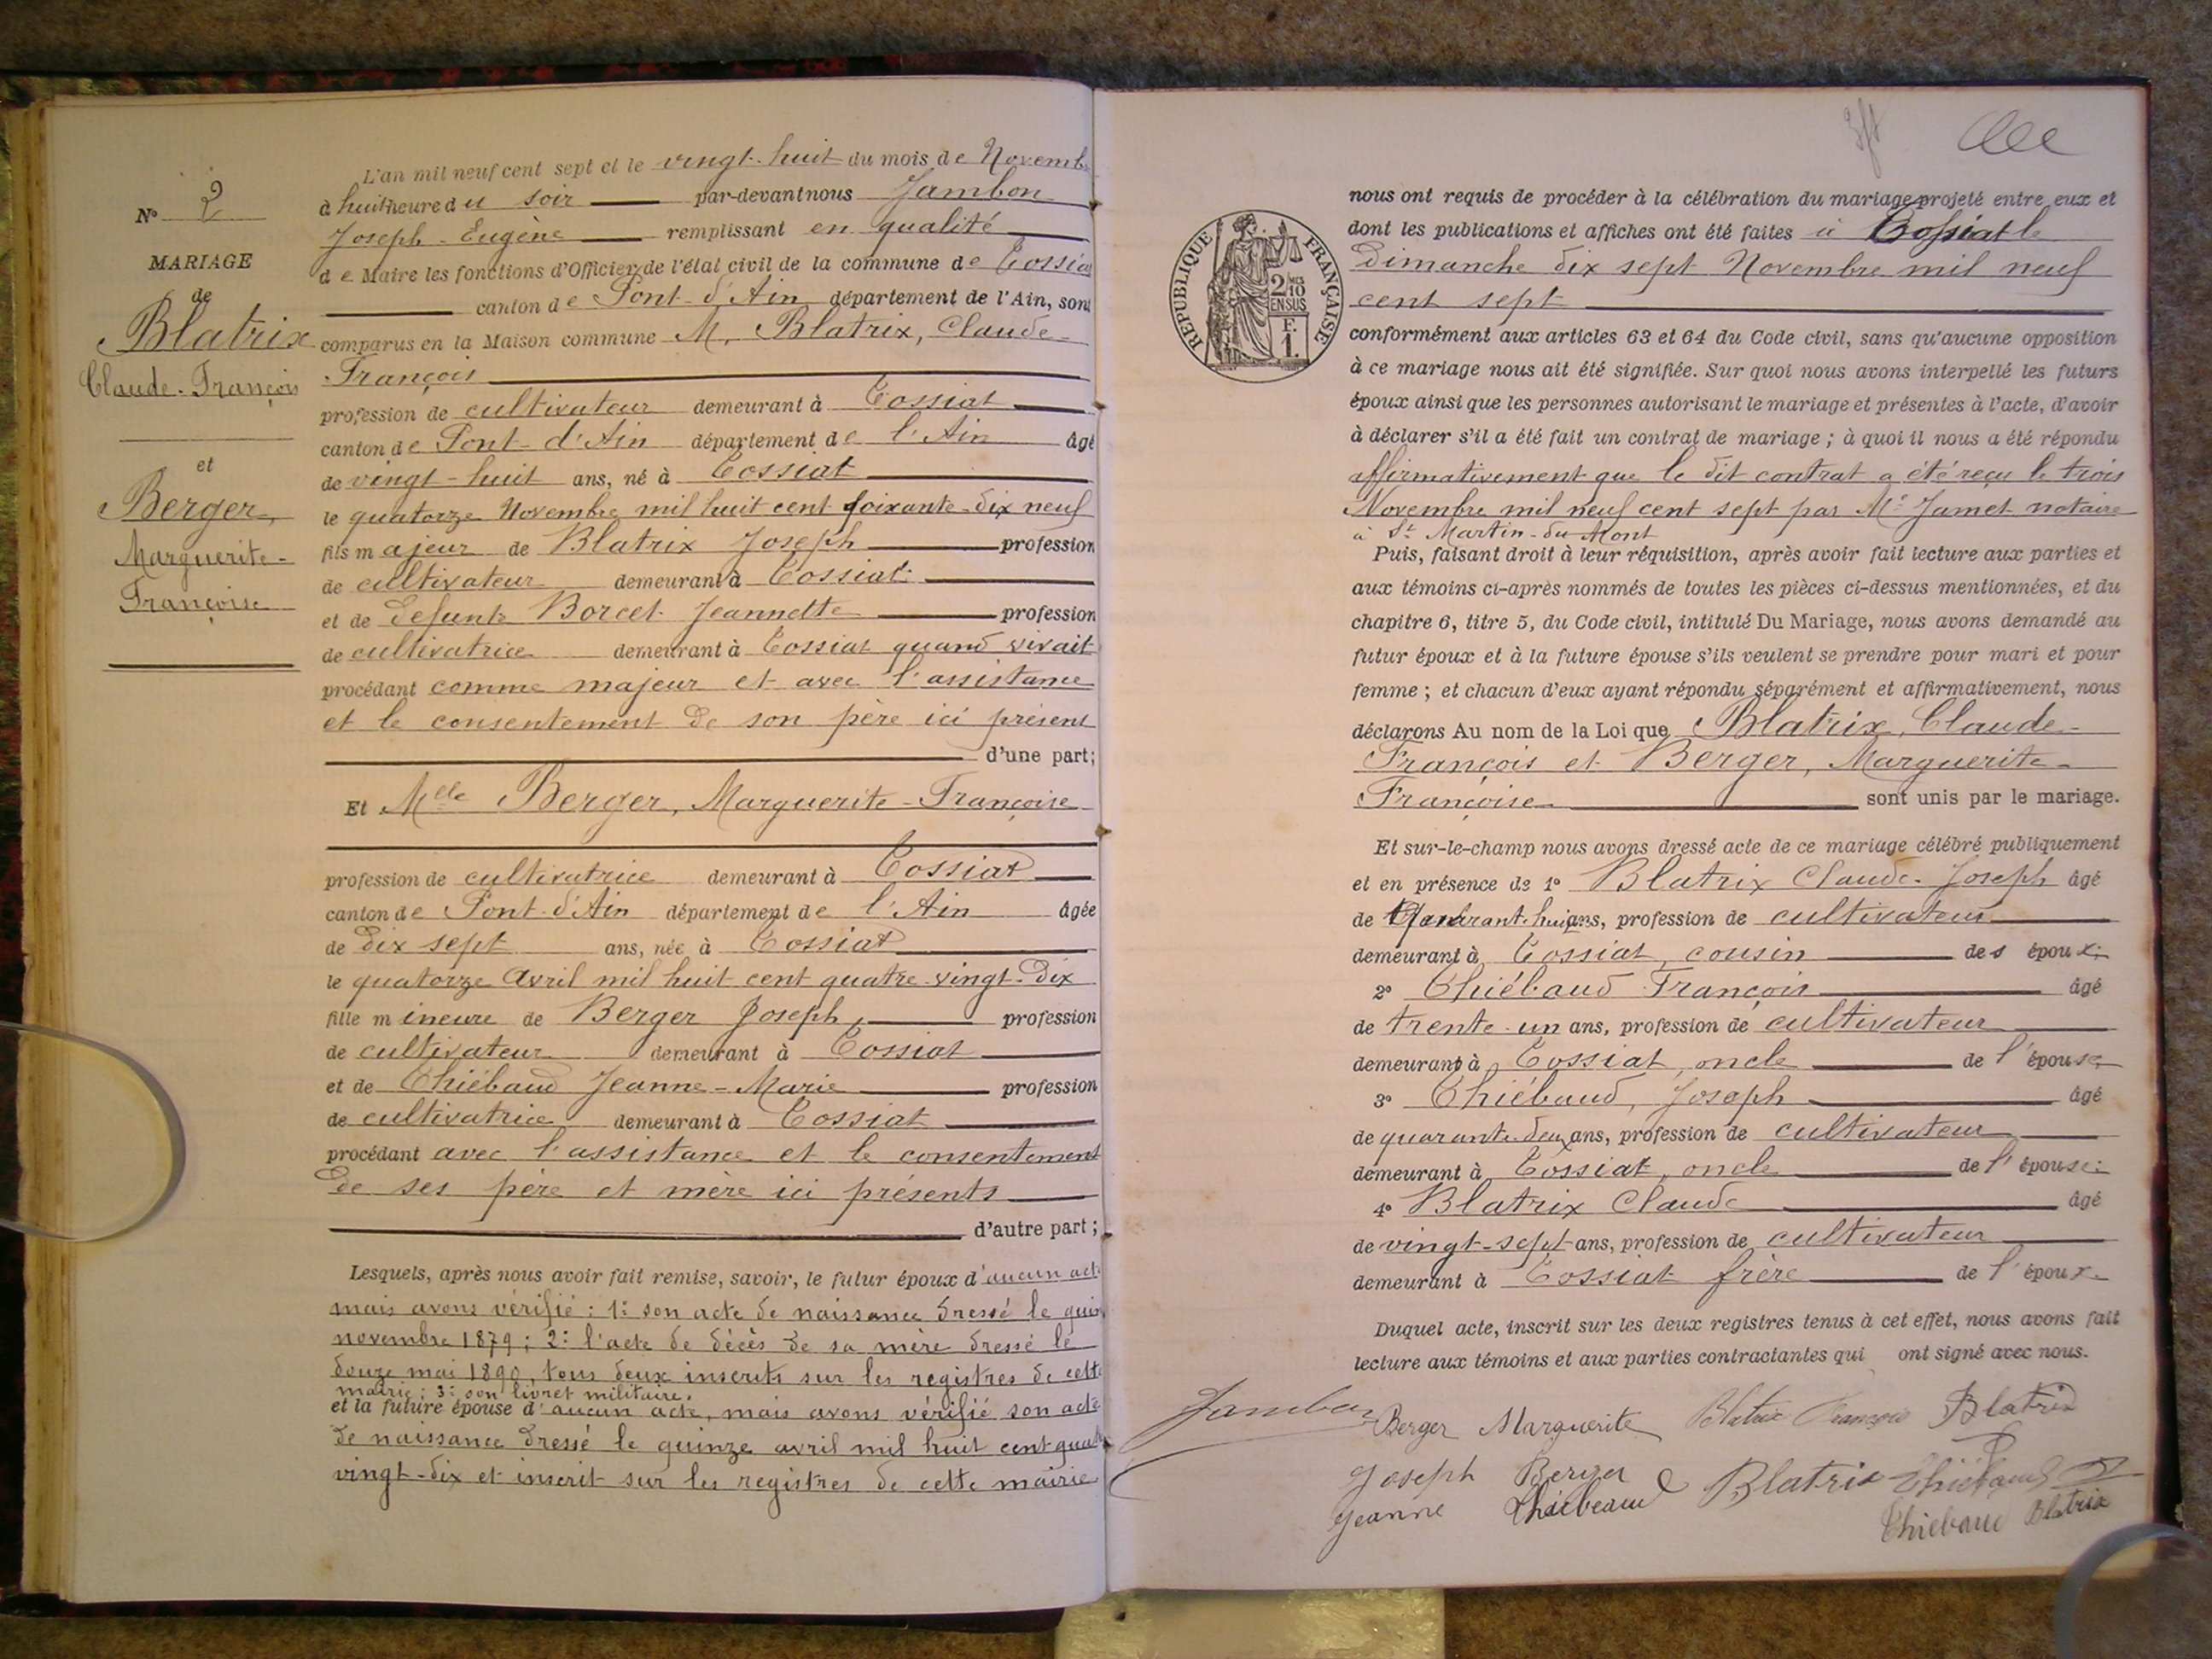 N° 2
MARIAGE
de
Blatrix
Claude-François
et
Berger,
Marguerite-
Françoise
L'an mil neuf cent sept et le vingt-huit du mois de Novemb
à huit heure du soir par-devant nous Jambon
Joseph-Eugène remplissant en qualité
de Maire les fonctions d'Officier de l'état civil de la commune de Tossia
canton de Pont-d'Ain département de l'Ain, sont
comparus en la Maison commune M. Blatrix, Claude-
François
profession de cultivateur demeurant à Tossiat
canton de Pont-d'Ain département de l'Ain âgé
de vingt-huit ans, né à Tossiat
le quatorze Novembre mil huit cent soixante-dix neuf
fils majeur de Blatrix Joseph profession
de cultivateur demeurant à Tossiat
et de défunte Borcet Jeannette profession
de cultivatrice demeurant à Tossiat quand vivait
procédant comme majeur et avec l'assistance
et le consentement de son père ici présent
d'une part;
Et Mlle Berger, Marguerite-Françoise
profession de cultivatrice demeurant à Tossiat
canton de Pont-d'Ain département de l'Ain âgée
de dix sept ans, née à Tossiat
le quatorze Avril mil huit cent quatre-vingt-dix
fille mineure de Berger Joseph, profession
de cultivateur demeurant à Tossiat
et de Thiébaud Jeanne-Marie profession
de cultivatrice demeurant à Tossiat
procédant avec l'assistance et le consentement
de ses père et mère ici présents
d'autre part;
Lesquels, après nous avoir fait remise, savoir, le futur époux d'aucun act
mais avons vérifié: 1° son acte de naissance dressé le quin
novembre 1879; 2° l'acte de décès de sa mère dressé le
douze mai 1890, tous deux inscrits sur les registres de cette
mairie; 3° son livret militaire.
et la future épouse d'aucun acte, mais avons vérifié son acte
de naissance dressé le quinze avril mil huit cent quat
vingt-dix et inscrit sur les registres de cette mairie
RÉPUBLIQUE FRANÇAISE
2/10 EN SUS
F. 1.
nous ont requis de procéder à la célébration du mariage projeté entre eux et
dont les publications et affiches ont été faites à Tossiat le
Dimanche dix sept Novembre mil neuf
cent sept
conformément aux articles 63 et 64 du Code civil, sans qu'aucune opposition
à ce mariage nous ait été signifiée. Sur quoi nous avons interpellé les futurs
époux ainsi que les personnes autorisant le mariage et présentes à l'acte, d'avoir
à déclarer s'il a été fait un contrat de mariage; à quoi il nous a été répondu
affirmativement que le dit contrat a été reçu le trois
Novembre mil neuf cent sept par Me Jamet notaire
à St Martin-du-Mont
Puis, faisant droit à leur réquisition, après avoir fait lecture aux parties et
aux témoins ci-après nommés de toutes les pièces ci-dessus mentionnées, et du
chapitre 6, titre 5, du Code civil, intitulé Du Mariage, nous avons demandé au
futur époux et à la future épouse s'ils veulent se prendre pour mari et pour
femme; et chacun d'eux ayant répondu séparément et affirmativement, nous
déclarons Au nom de la Loi que Blatrix, Claude-
François et Berger, Marguerite-
Françoise sont unis par le mariage.
Et sur-le-champ nous avons dressé acte de ce mariage célébré publiquement
et en présence de 1° Blatrix Claude-Joseph âgé
de Quarant-huit ans, profession de cultivateur
demeurant à Tossiat, cousin des époux;
2° Thiébaud François âgé
de trente-un ans, profession de cultivateur
demeurant à Tossiat, oncle de l'épouse;
3° Thiébaud, Joseph âgé
de quarante-deux ans, profession de cultivateur
demeurant à Tossiat, oncle de l'épouse;
4° Blatrix Claude âgé
de vingt-sept ans, profession de cultivateur
demeurant à Tossiat frère de l'époux.
Duquel acte, inscrit sur les deux registres tenus à cet effet, nous avons fait
lecture aux témoins et aux parties contractantes qui ont signé avec nous.
Jambon Berger Marguerite Blatrix François Blatrix
Joseph Berger Blatrix Thiébaud
Jeanne Thiébeaud Thiebaud Blatrix